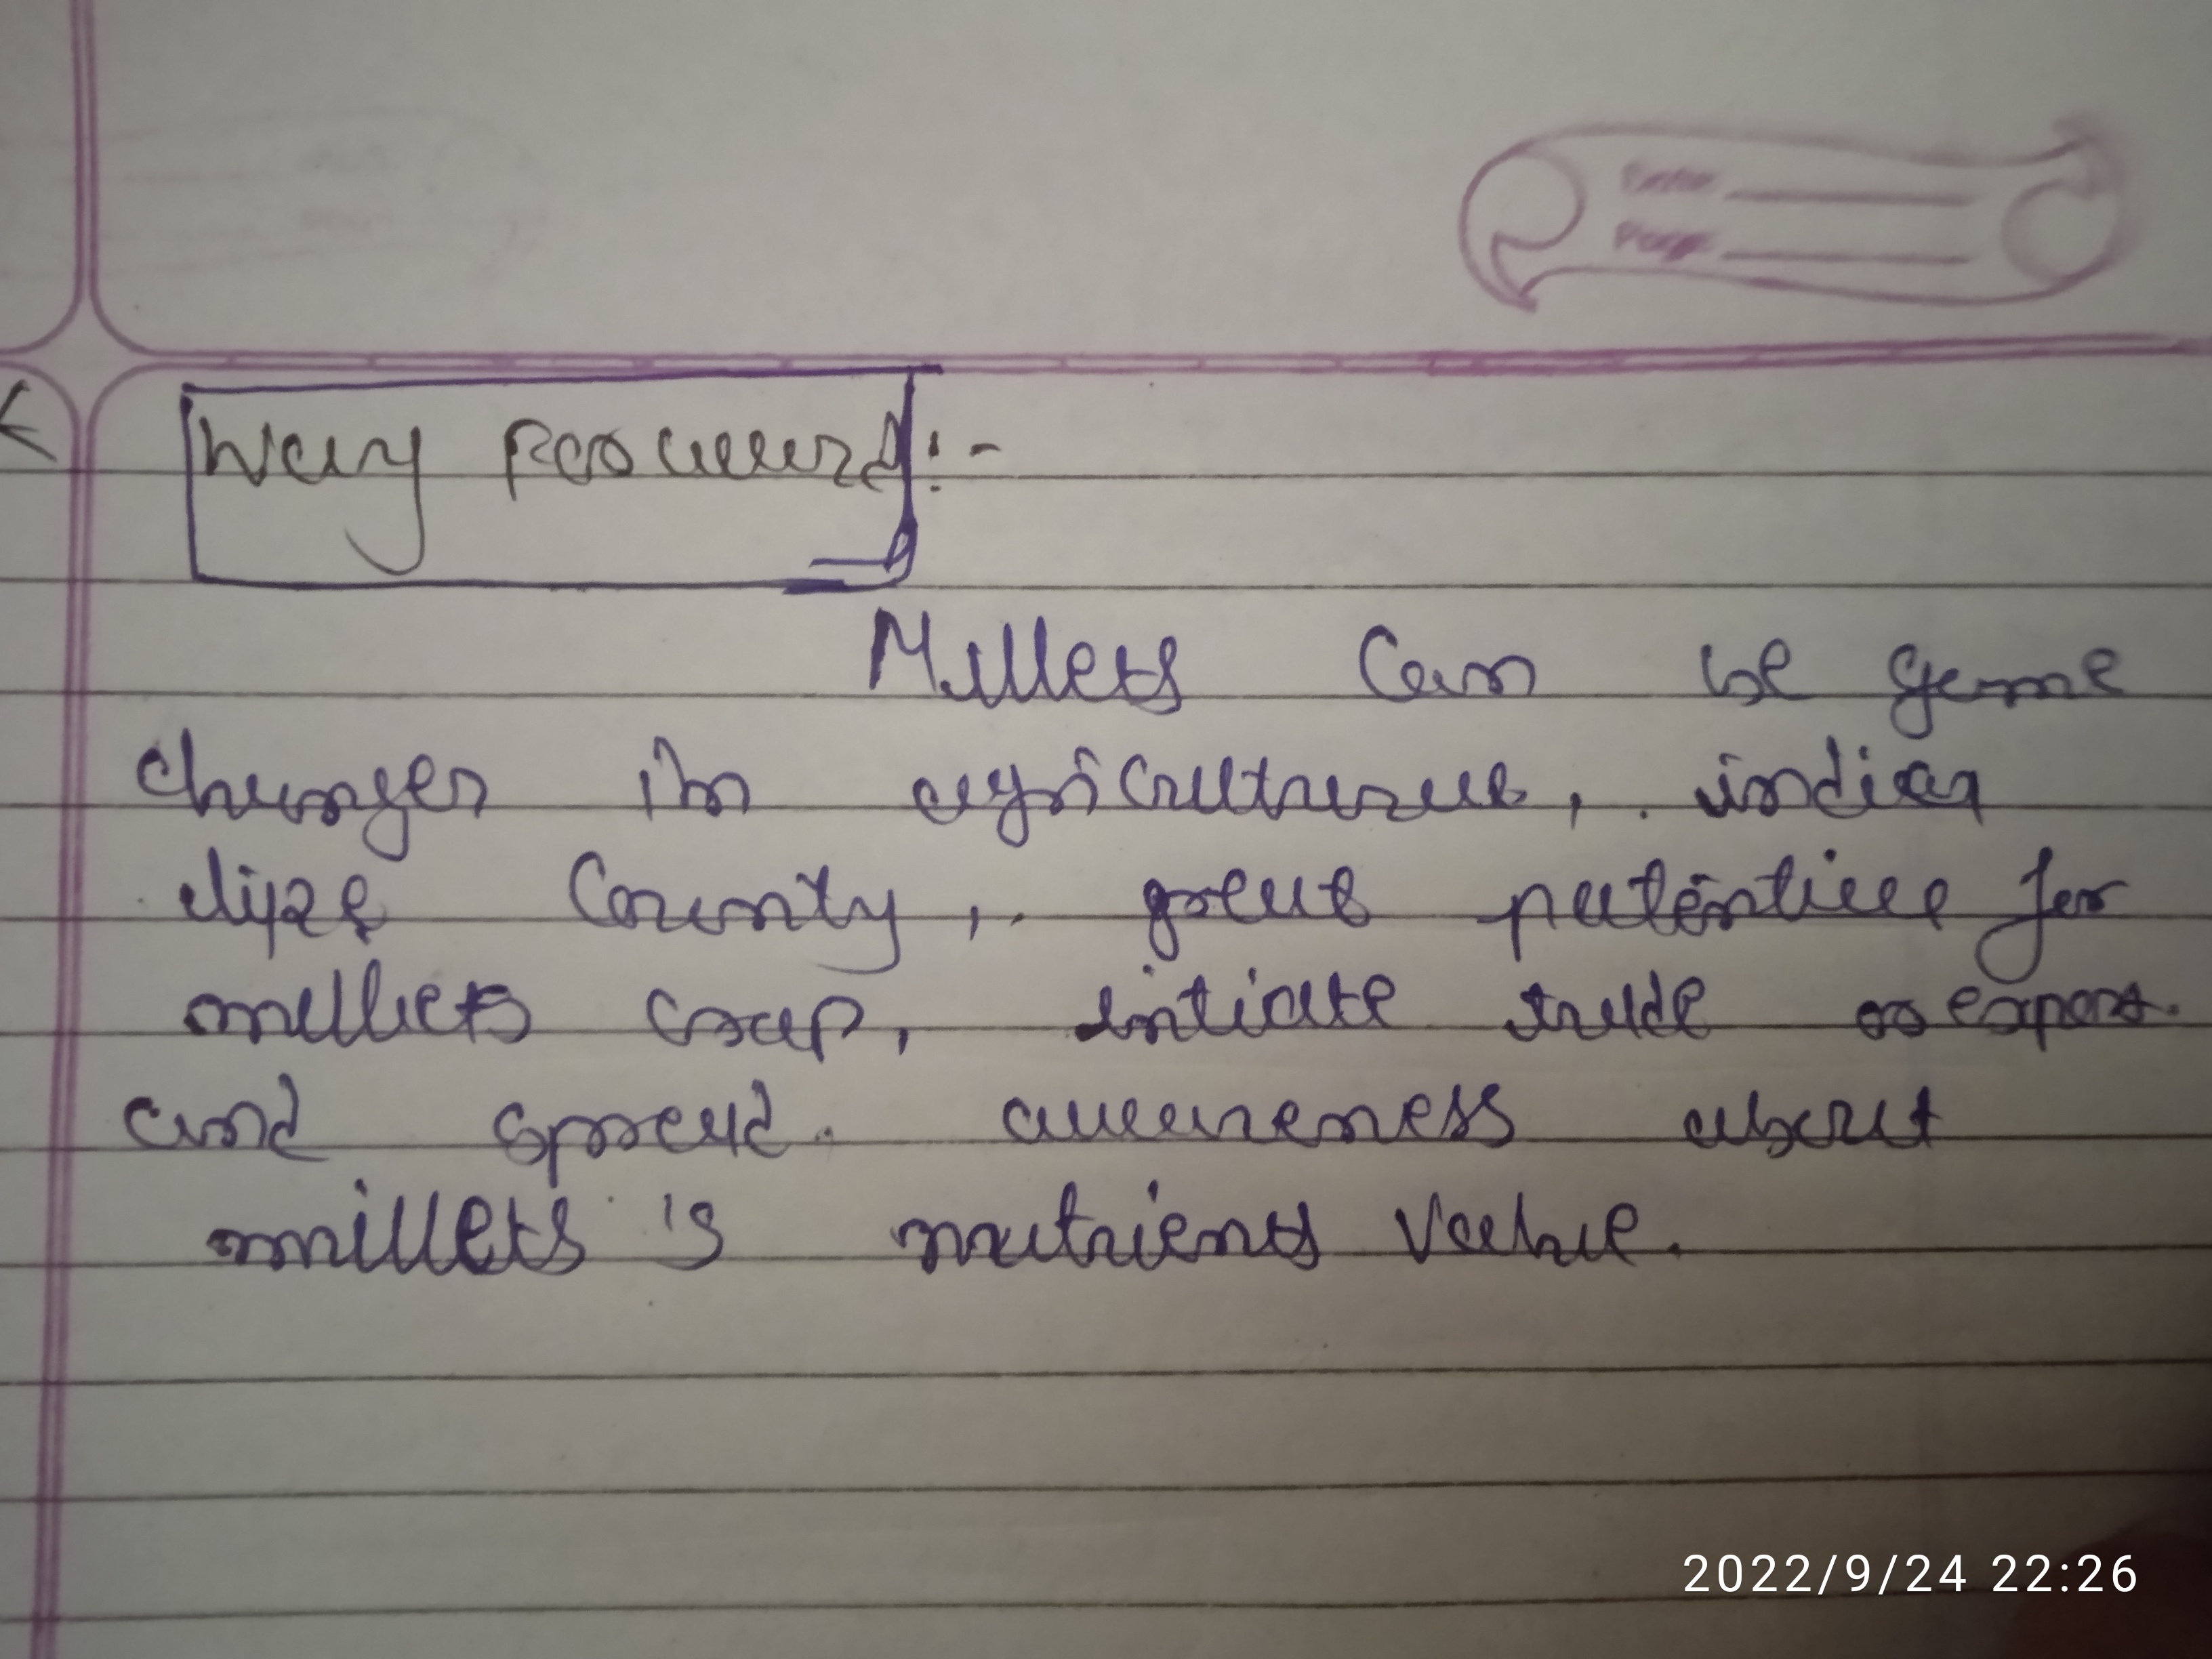 Date
Page
Way forward:-
Millets can be game
changer in agriculture, india
like county, great potential for
millets crop, intiate trade or export.
and spread. awareness about
millets is nutrients value.
2022/9/24 22:26